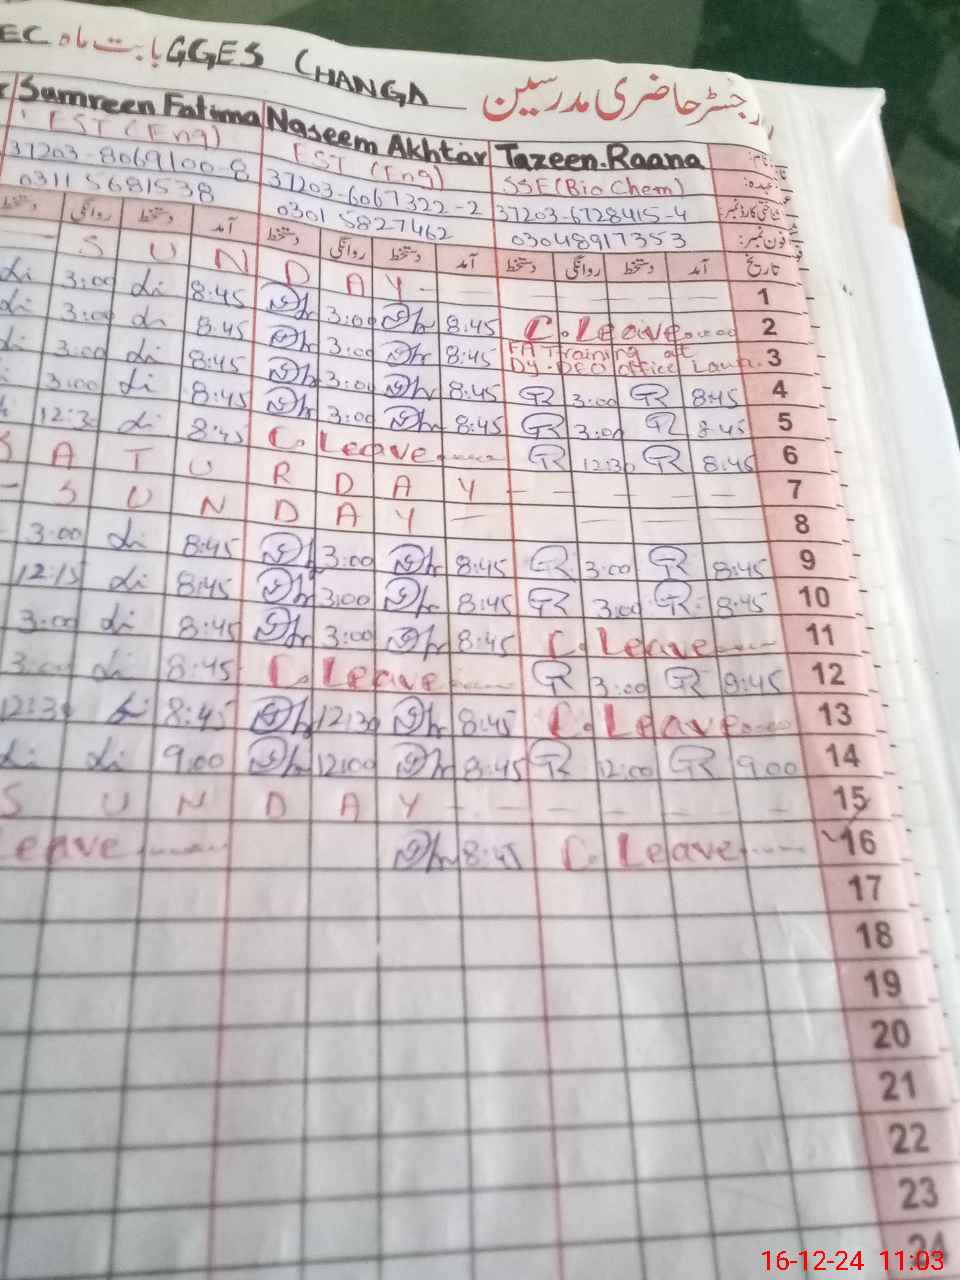 EC بابت ماہ GGES CHANGA رجسٹر حاضری مدرسین
Sumreen Fatima Naseem Akhtar Tazeen.Raana نام:
EST (Eng) EST (Eng) SSE(Bio Chem) عہدہ:
37203-8069100-8 37203-6067322-2 37203-6728415-4 شناختی کارڈ نمبر:
0311 5681538 0301 5827462 03048917353 فون نمبر:
دستخط روانگی دستخط آمد دستخط روانگی دستخط آمد دستخط روانگی دستخط آمد تاریخ
S U N D A Y 1
3:00 8:45 3:00 8:45 C. Leave 2
3:00 8:45 3:00 8:45 Training at Dy. DEO office 3
3:00 8:45 3:00 8:45 3:00 8:45 4
3:00 8:45 3:00 8:45 3:00 8:45 5
12:30 8:45 C. Leave 12:30 8:45 6
S A T U R D A Y 7
S U N D A Y 8
3:00 8:45 3:00 8:45 3:00 8:45 9
12:15 8:45 3:00 8:45 3:00 8:45 10
3:00 8:45 3:00 8:45 C. Leave 11
3:00 8:45 C. Leave 3:00 8:45 12
12:30 8:45 12:30 8:45 C. Leave 13
9:00 12:00 8:45 12:00 9:00 14
S U N D A Y 15
Leave 8:45 C. Leave 16
17
18
19
20
21
22
23
24
16-12-24 11:03